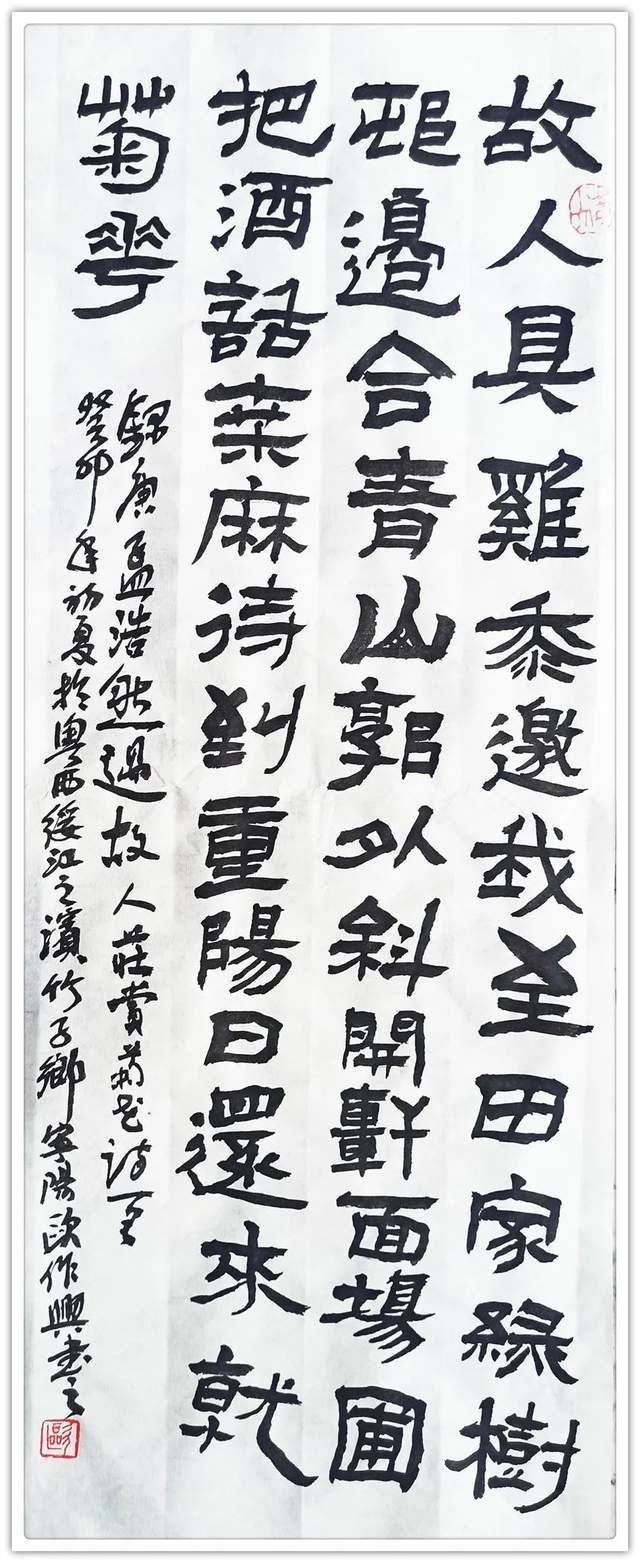 故人具雞黍邀我至田家綠樹
邨邊合青山郭外斜開軒面場圃
把酒話桑麻待到重陽日還來就
菊花
錄唐孟浩然過故人莊賞菊花詩一首
癸卯年初夏於粵西綏江之濱竹子鄉寧陽歐作興書之